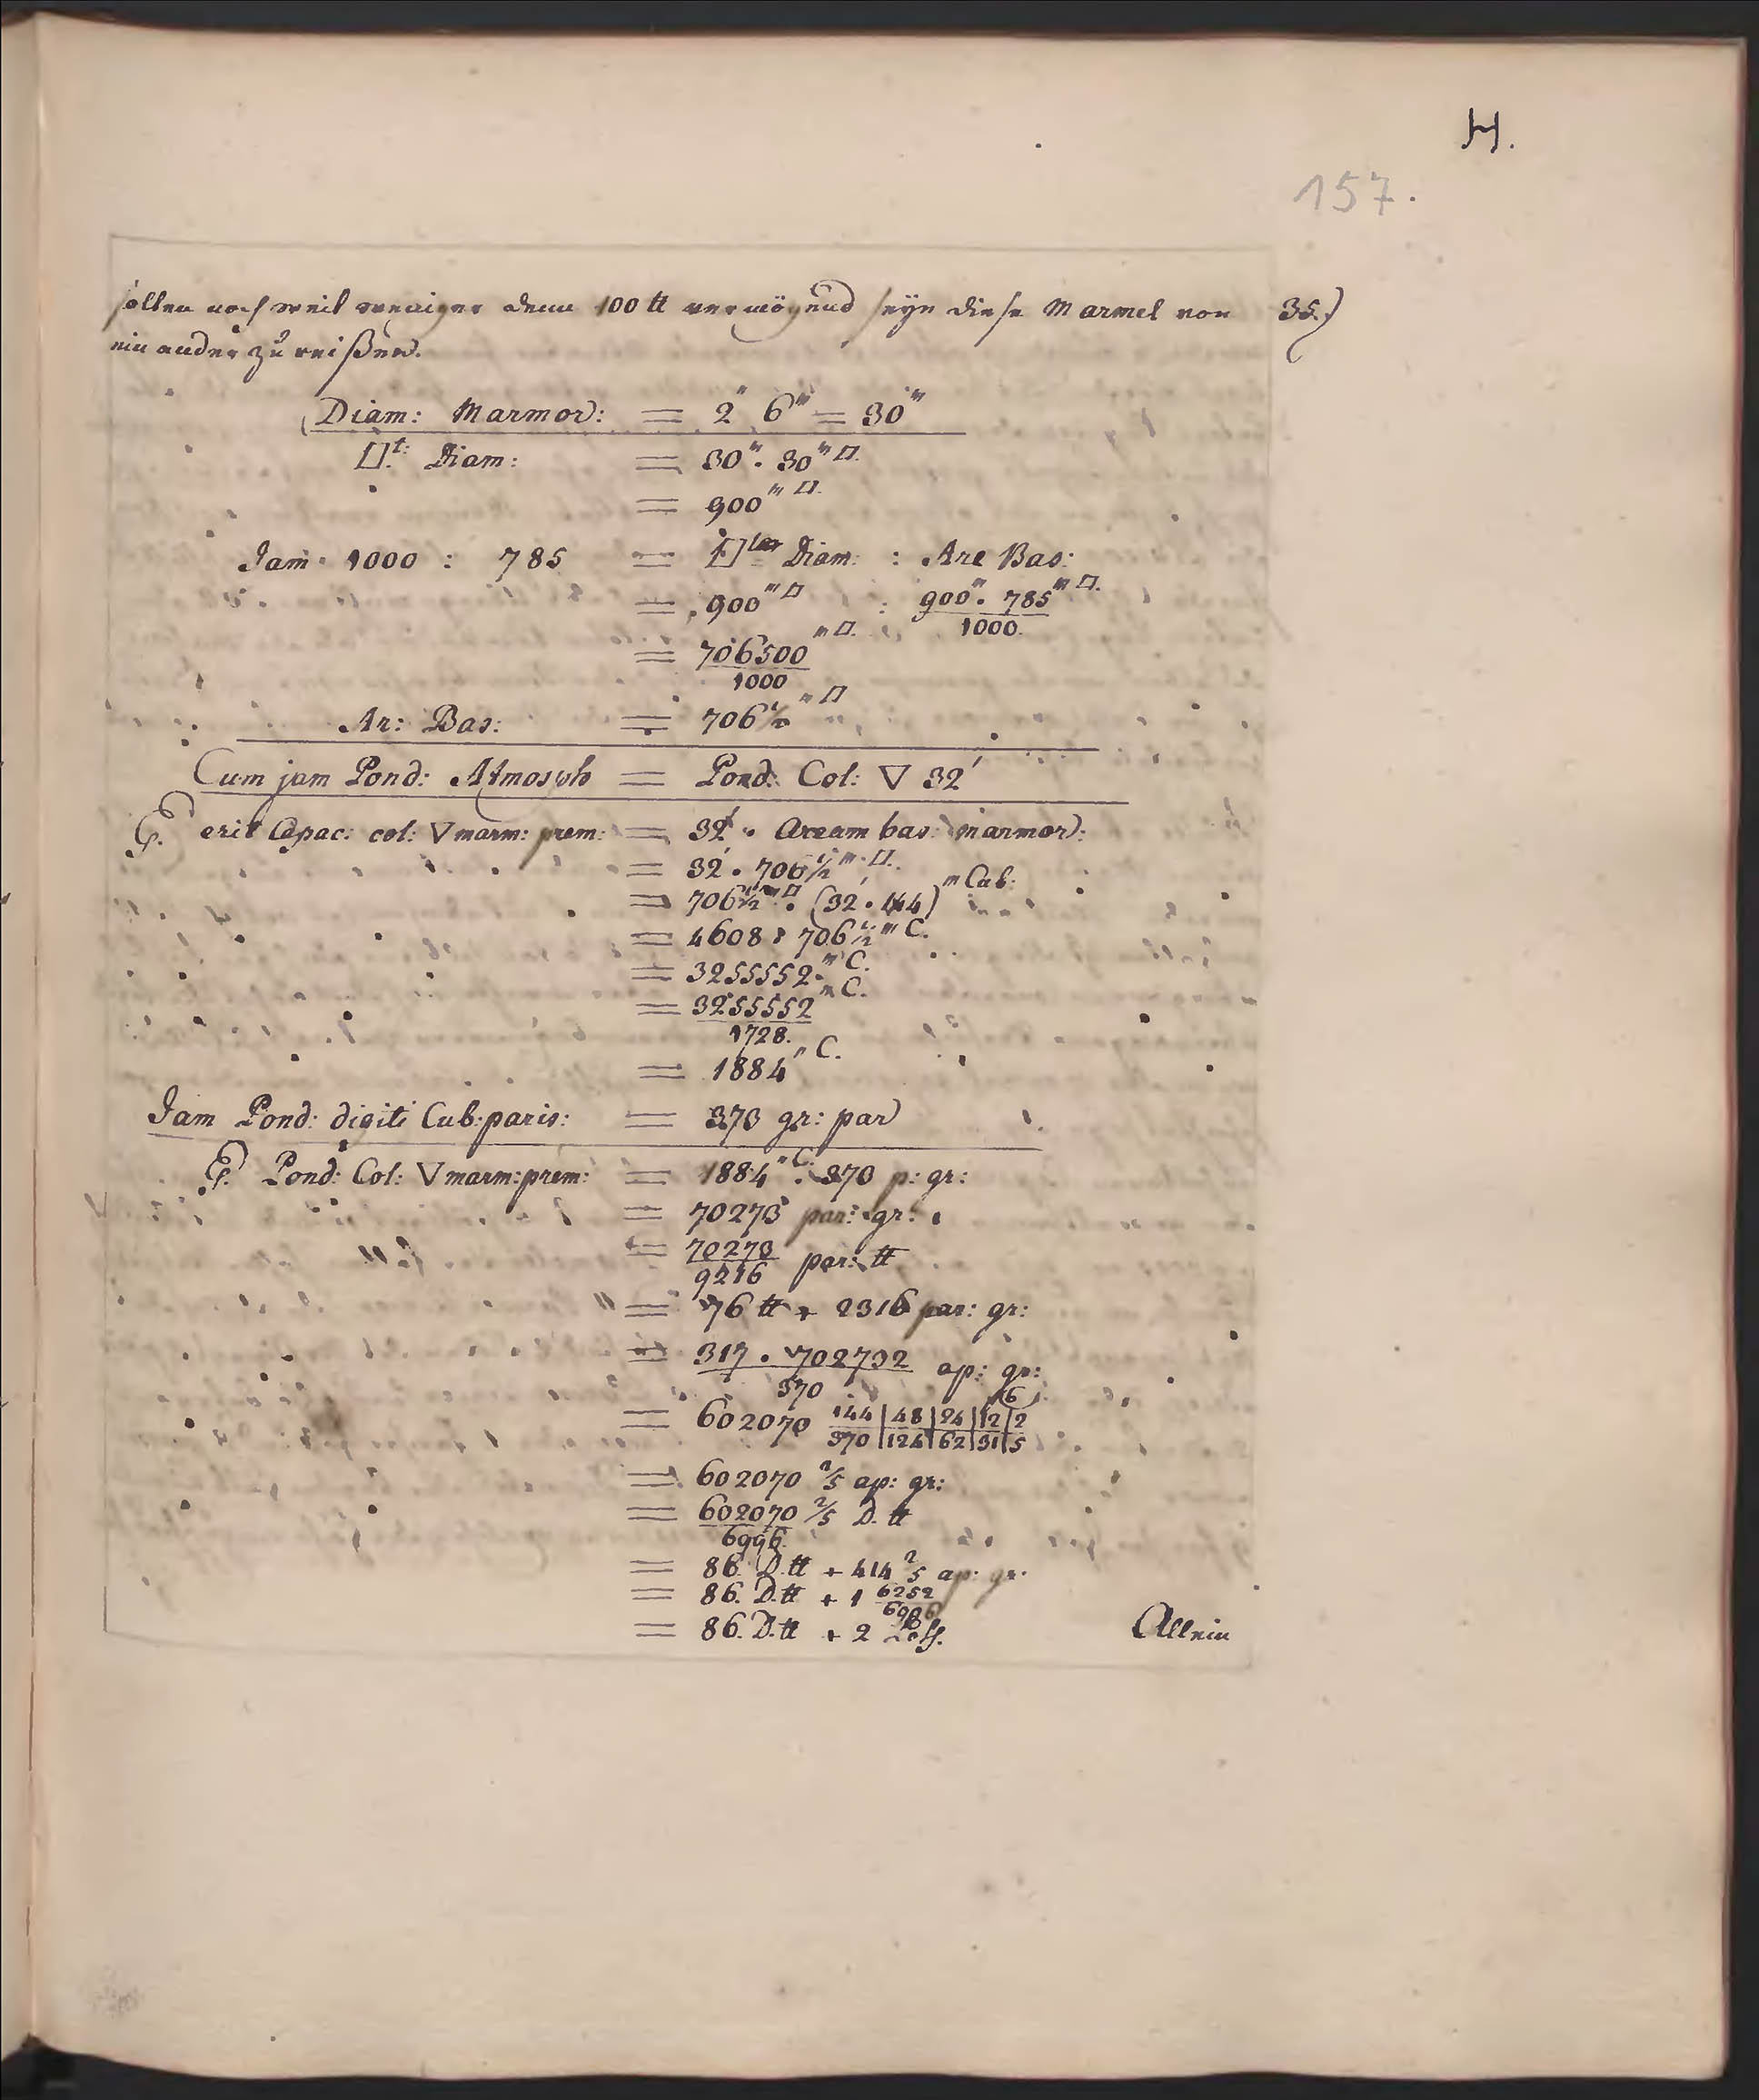 H.
157.
sollen noch weit weniger denn 100 ℔ vermögend seyn diese Marmel von 35.)
ein ander zu reißen.
Diam: Marmor: = 2" 6''' = 30'''
□t: Diam: = 30'''. 30''' □.
= 900''' □.
Jam 1000 : 785 = □ter Diam: : Are Bas:
= 900''' □ : 900'''. 785''' □. / 1000.
= 706500 / 1000 ''' □.
Ar: Bas: = 706 1/2 ''' □
Cum jam Pond: Atmosph = Pond: Col: ▽ 32'
E. erit Capac: col: ▽ marm: prem: = 32' . Aream bas: marmor:
= 32' . 706 1/2 ''' □.
= 706 1/2 ''' □ . (32 . 144) ''' Cub:
= 4608 . 706 1/2 ''' C.
= 3255552 ''' C.
= 3255552 / 1728. ''' C.
= 1884 " C.
Jam Pond: digiti Cub: paris: = 373 gr: par
E. Pond: Col: ▽ marm: prem: = 1884 " C. . 373 p: gr:
= 70273 par: gr:
= 70273 / 9216 par: ℔
= 76 ℔ + 2316 par: gr:
= 317 . 702732 / 370 ap: gr:
(6
= 602070 144/370 | 48/124 | 24/62 | 12/31 | 2/5
= 602070 2/5 ap: gr:
= 602070 2/5 / 6996. D. ℔
= 86. D. ℔ + 414 2/5 ap: gr:
= 86. D. ℔ + 1 6252/6996
= 86. D. ℔ + 2 Loth. Allein